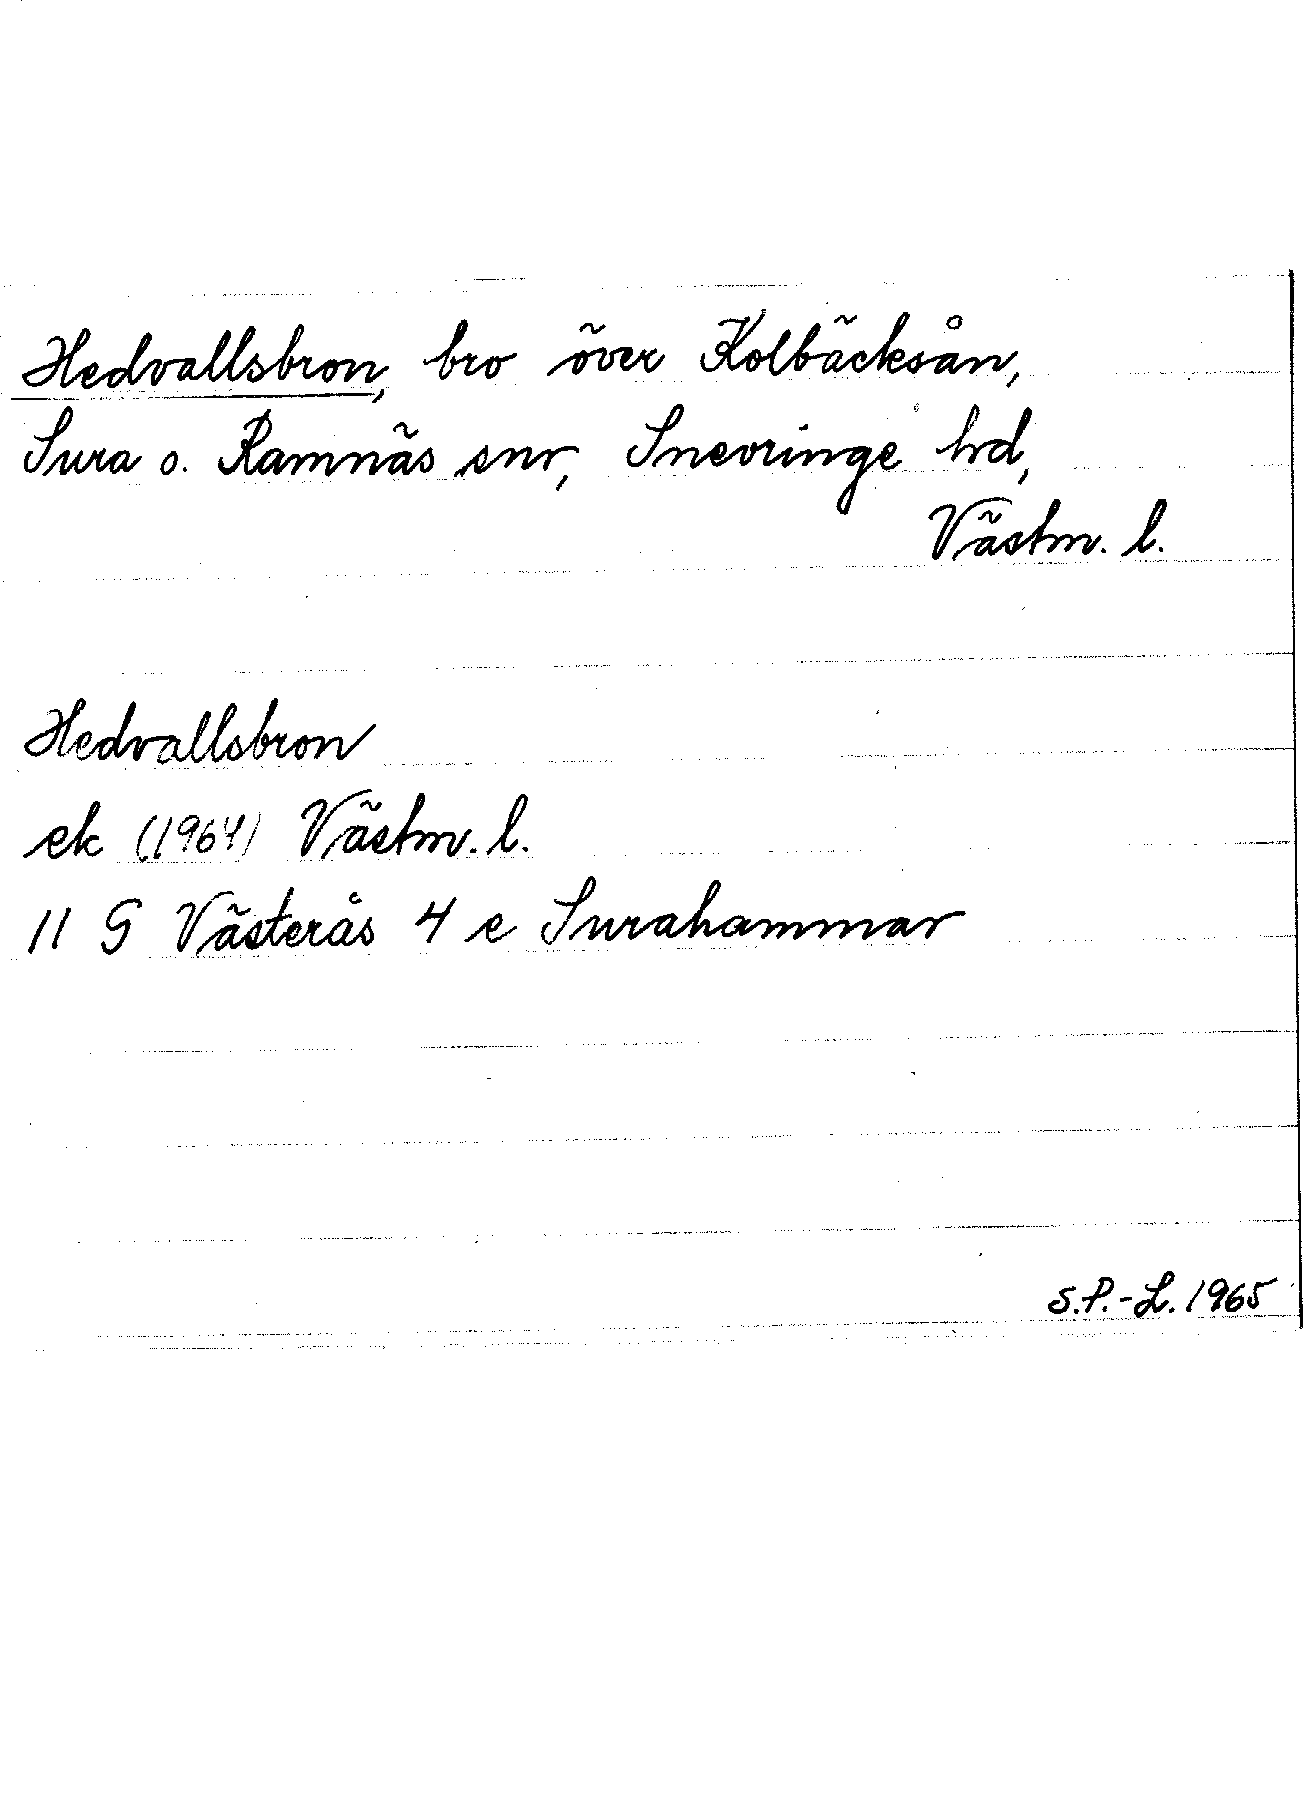 Hedvallsbron, bro över Kolbäcksån,
Sura o. Ramnäs snr, Snevringe hd,
Västm. l.
Hedvallsbron
ek (1964) Västm. l.
11 G Västerås 4 e Surahammar
S.P.-L. 1965